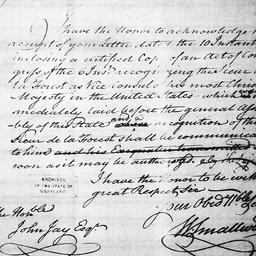 I have the Honor to acknowledge
receipt of your Letter dat the 10 Instant
inclosing a certified Cop of an Act of Con
gress of the 6 Ins recognizing the Sieur
la Forest as Vice Consul his most Chris
Majesty in the United States which
mediately laid before the general As
bly of this State and a recognition of the
Sieur de la Forest shall be communica
to him
soon as it may be
I have the Honor to be with
great Respect Sir
your Obed Hble
The Honble
John Jay Esqr
W Smallwo
ARCHIVES
OF THE STATE OF
MARYLAND